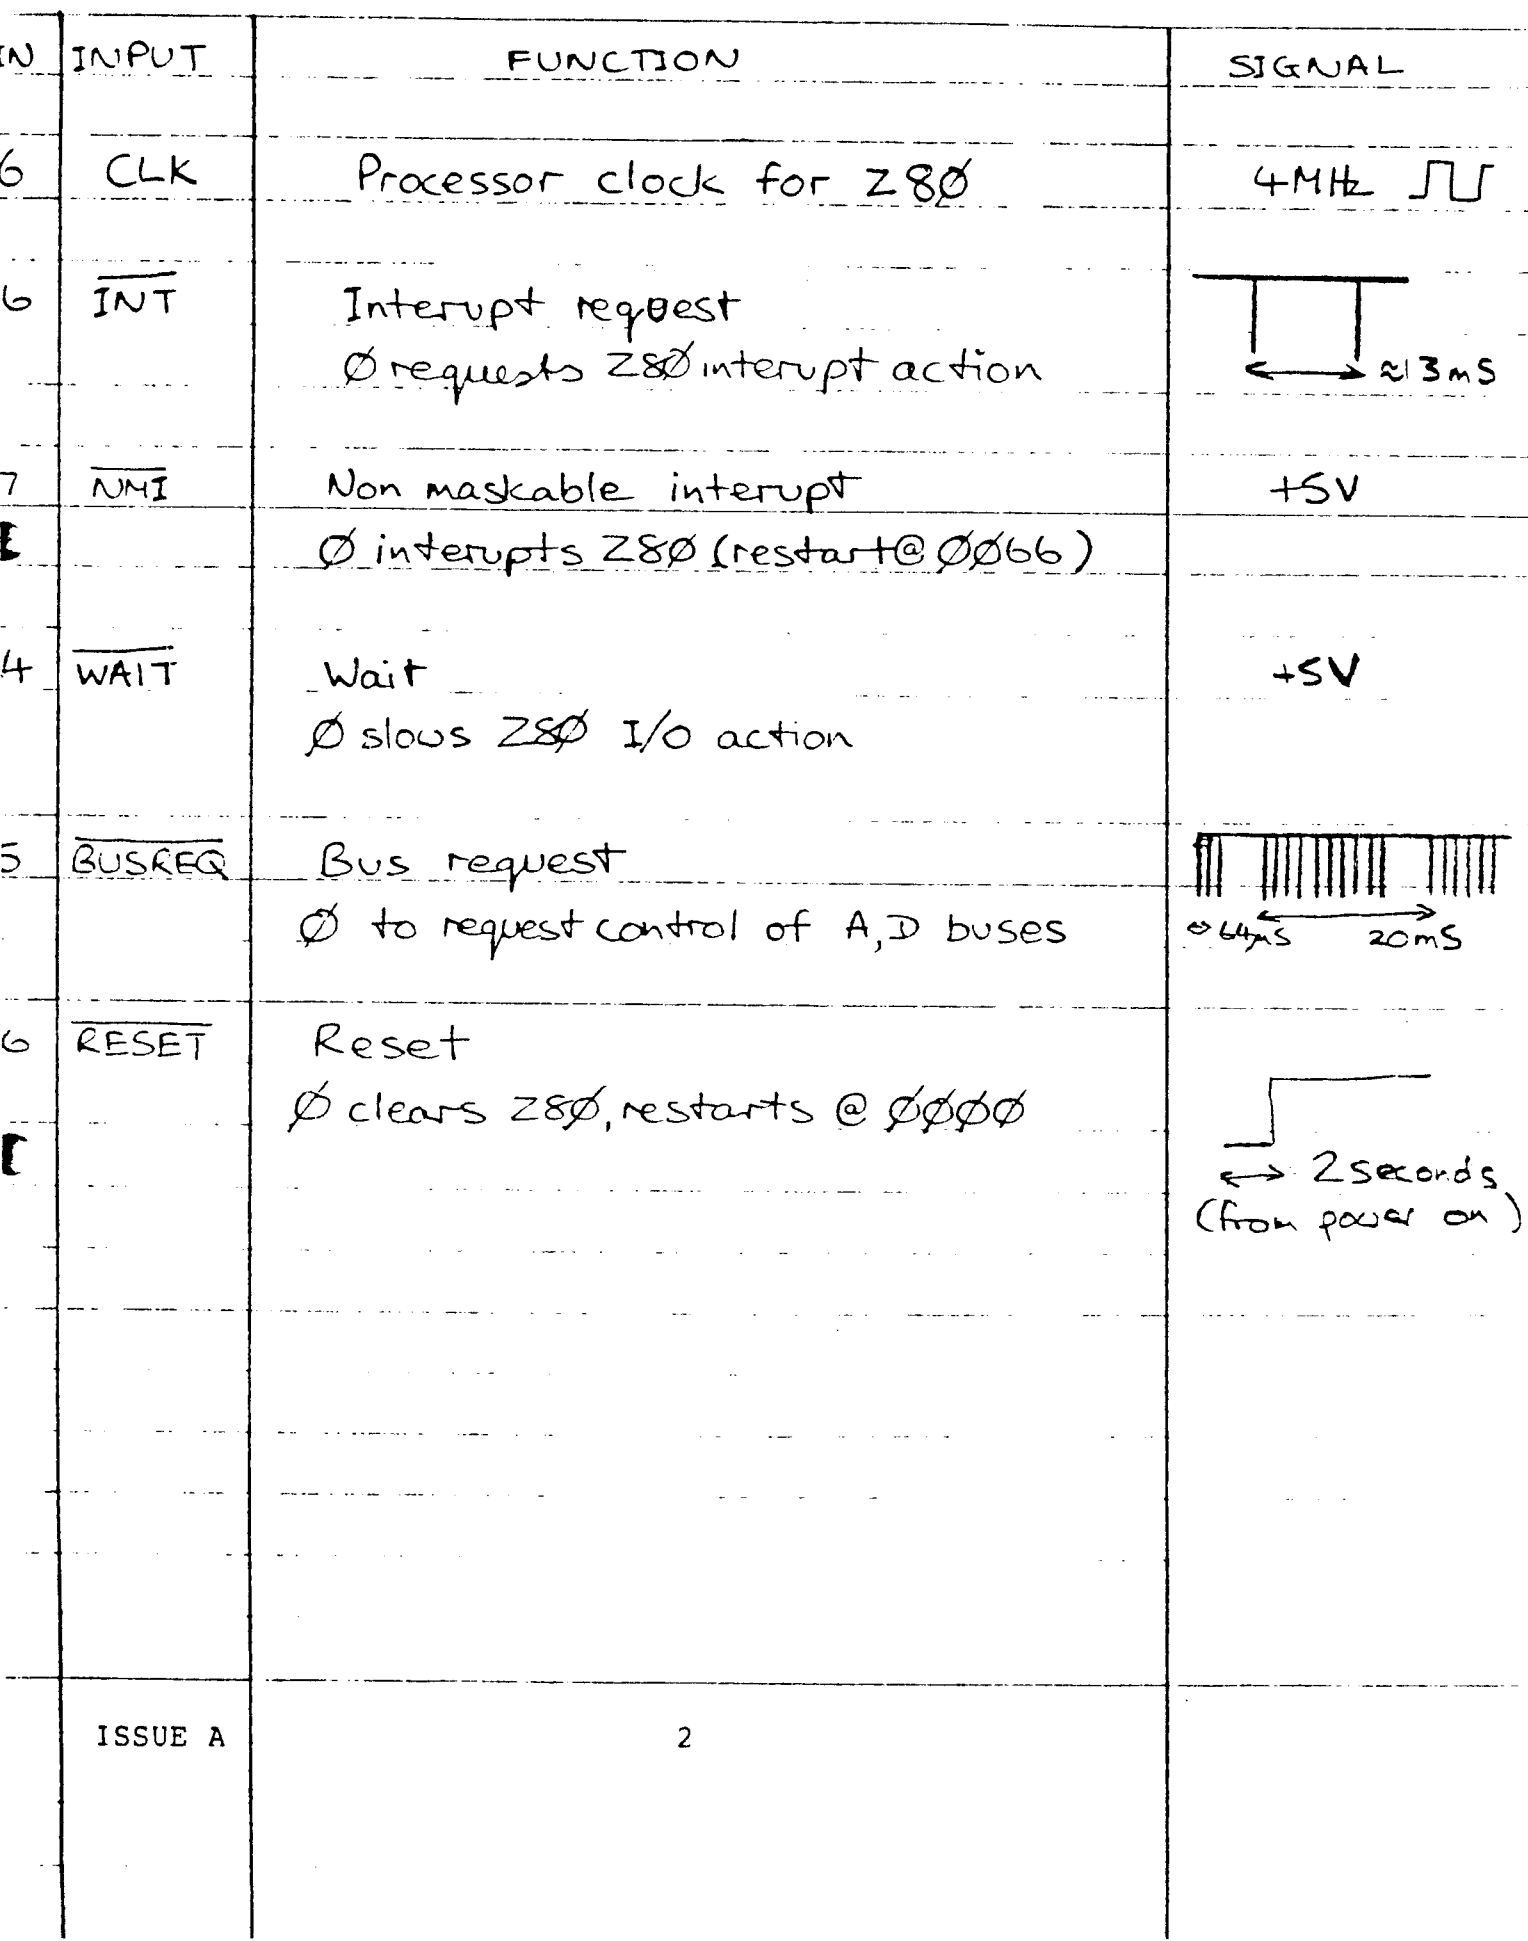 IN INPUT FUNCTION SIGNAL
6 CLK Processor clock for Z8Ø 4MHz
6 INT Interupt request
Ø requests Z8Ø interupt action ≈13mS
7 NMI Non maskable interupt +5V
Ø interupts Z8Ø (restart@ ØØ66)
4 WAIT Wait +5V
Ø slows Z8Ø I/O action
5 BUSREQ Bus request
Ø to request control of A,D buses 64µS 20mS
6 RESET Reset
Ø clears Z8Ø, restarts @ ØØØØ
2 seconds
(from power on)
ISSUE A 2